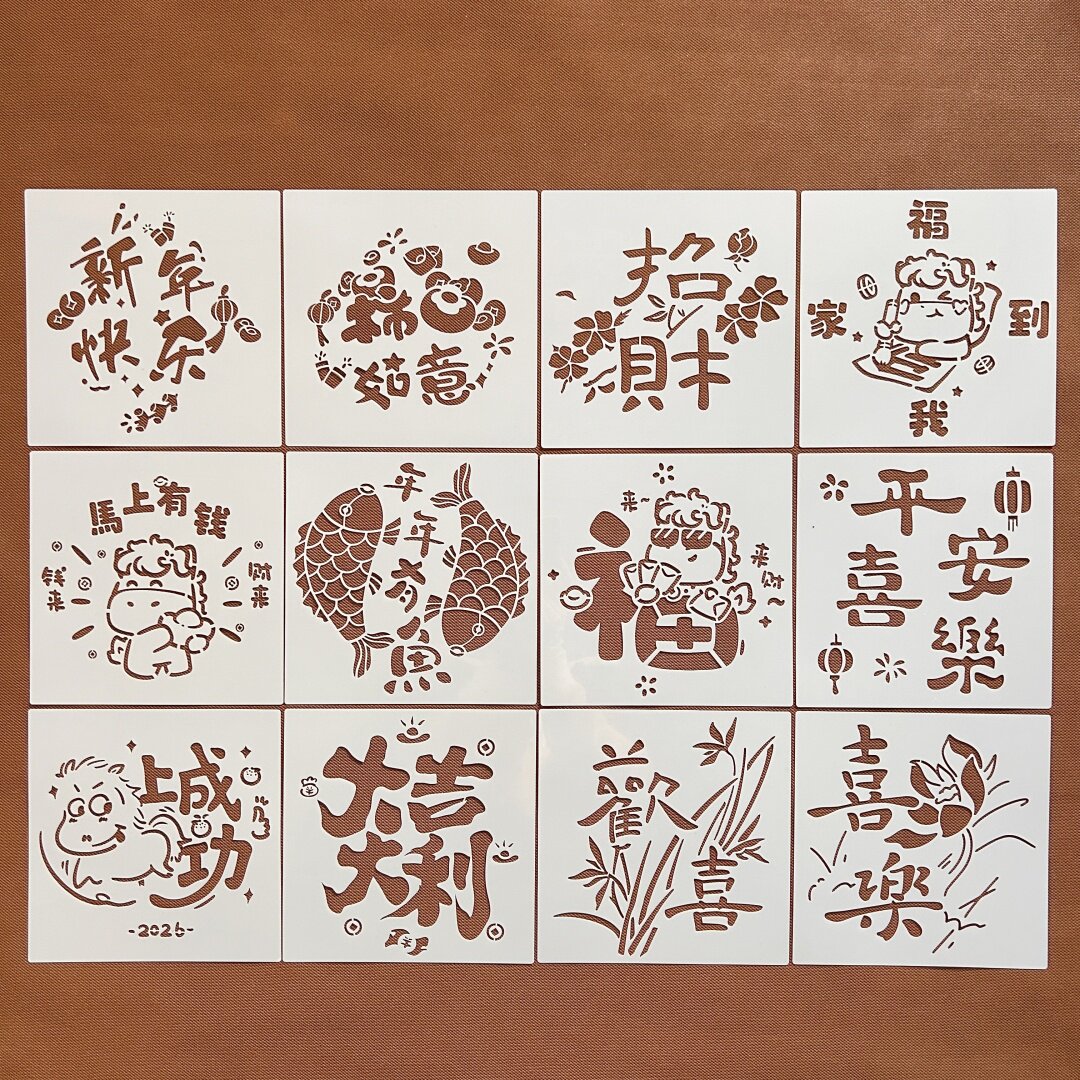 新年
快乐
柿
如意
招
財
福
家 到
我
馬上有钱
钱来 财来
年
年
有
魚
来~
福
来财~
平
安
喜
樂
上成
功
-2026-
大吉
大利
歡
喜
喜
楽